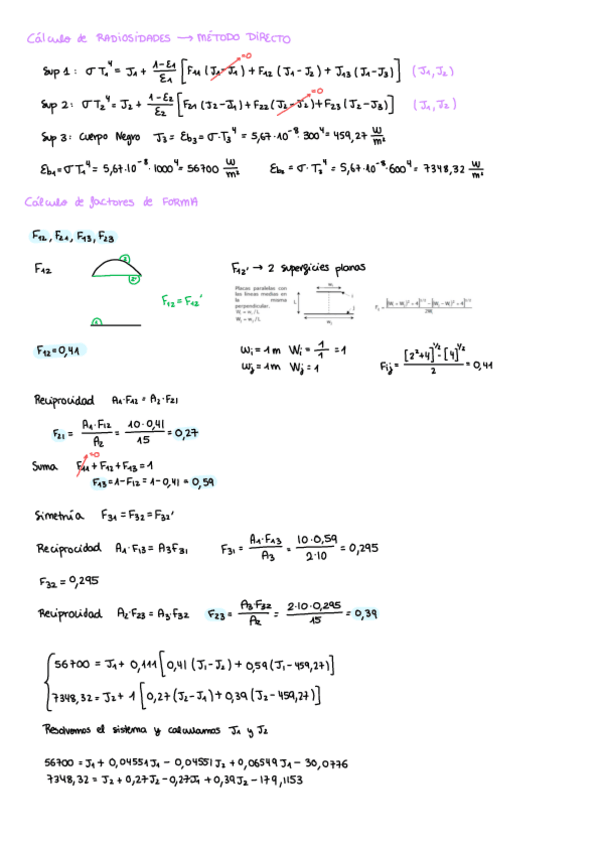 Cálculo de RADIOSIDADES → MÉTODO DIRECTO
Sup 1: σT₁⁴ = J₁ + (1-ε₁)/ε₁ [F₁₁(J₁-J₁) + F₁₂(J₁-J₂) + J₁₃(J₁-J₃)] (J₁,J₂)
=0
Sup 2: σT₂⁴ = J₂ + (1-ε₂)/ε₂ [F₂₁(J₂-J₁) + F₂₂(J₂-J₂) + F₂₃(J₂-J₃)] (J₁,J₂)
=0
Sup 3: Cuerpo Negro J₃ = Eb₃ = σ·T₃⁴ = 5,67·10⁻⁸·300⁴ = 459,27 W/m²
Eb₁ = σT₁⁴ = 5,67·10⁻⁸·1000⁴ = 56700 W/m² Eb₂ = σ·T₂⁴ = 5,67·10⁻⁸·600⁴ = 7348,32 W/m²
Cálculo de factores de FORMA
F₁₂, F₂₁, F₁₃, F₂₃
F₁₂ 2 2' F₁₂' → 2 superficies planas
F₁₂ = F₁₂'
1
Placas paralelas con
las líneas medias en
la misma
perpendicular.
Wᵢ = wᵢ/L
Wⱼ = wⱼ/L
F₁₂ = 0,41 wᵢ = 1m Wᵢ = 1/1 = 1
wⱼ = 1m Wⱼ = 1 Fij = ([2²+4]^½ - [4]^½)/2 = 0,41
Reciprocidad A₁·F₁₂ = A₂·F₂₁
F₂₁ = A₁·F₁₂/A₂ = 10·0,41/15 = 0,27
Suma F₁₁ + F₁₂ + F₁₃ = 1
=0
F₁₃ = 1-F₁₂ = 1-0,41 = 0,59
Simetría F₃₁ = F₃₂ = F₃₂'
Reciprocidad A₁·F₁₃ = A₃F₃₁ F₃₁ = A₁·F₁₃/A₃ = 10·0,59/2·10 = 0,295
F₃₂ = 0,295
Reciprocidad A₂·F₂₃ = A₃·F₃₂ F₂₃ = A₃·F₃₂/A₂ = 2·10·0,295/15 = 0,39
56700 = J₁ + 0,111[0,41(J₁-J₂) + 0,59(J₁-459,27)]
7348,32 = J₂ + 1[0,27(J₂-J₁) + 0,39(J₂-459,27)]
Resolvemos el sistema y calculamos J₁ y J₂
56700 = J₁ + 0,04551J₁ - 0,04551J₂ + 0,06549J₁ - 30,0776
7348,32 = J₂ + 0,27J₂ - 0,27J₁ + 0,39J₂ - 179,1153